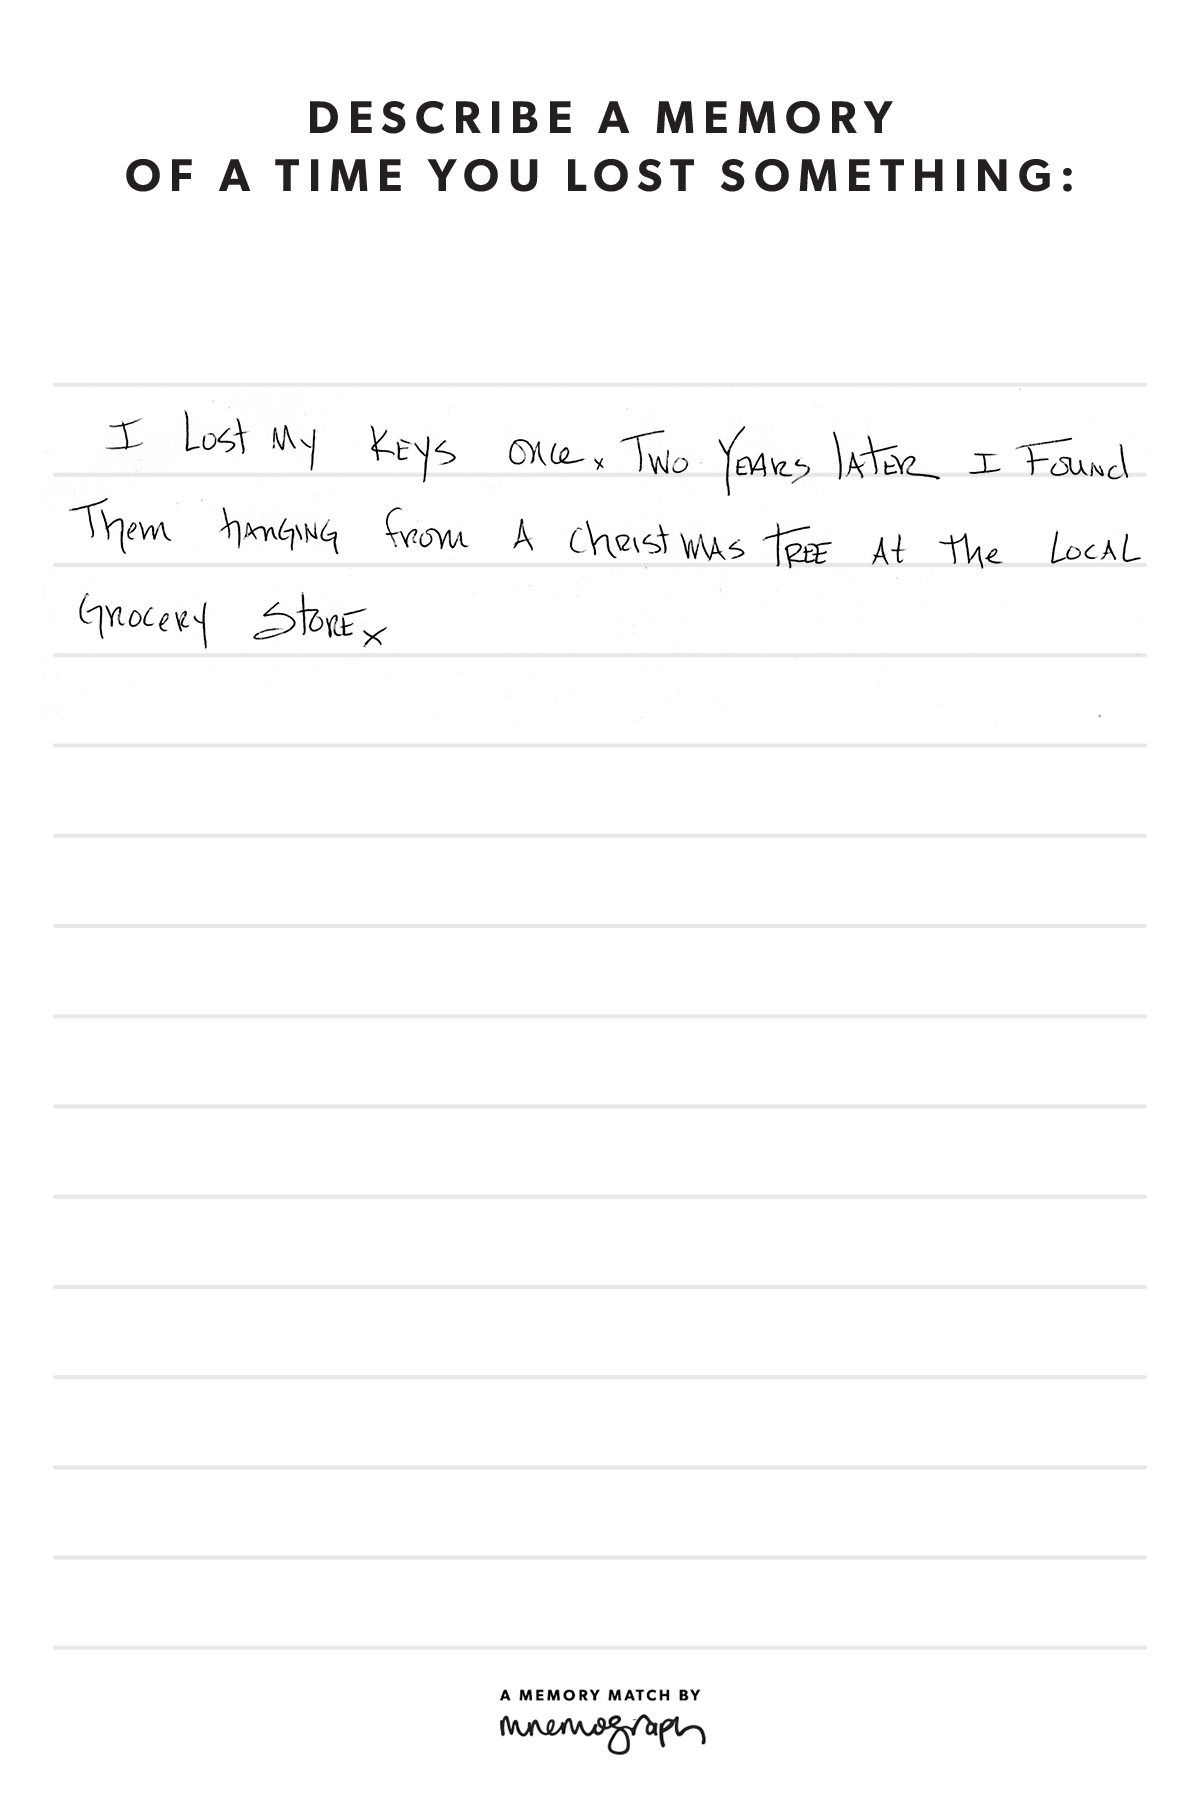 DESCRIBE A MEMORY
OF A TIME YOU LOST SOMETHING:
I Lost My KEYS once x Two YEARS lATER I Found
Them hANGING from A ChRIST MAS TREE At the LOCAL
GROCeRY STORE x
A MEMORY MATCH BY
mnemograph